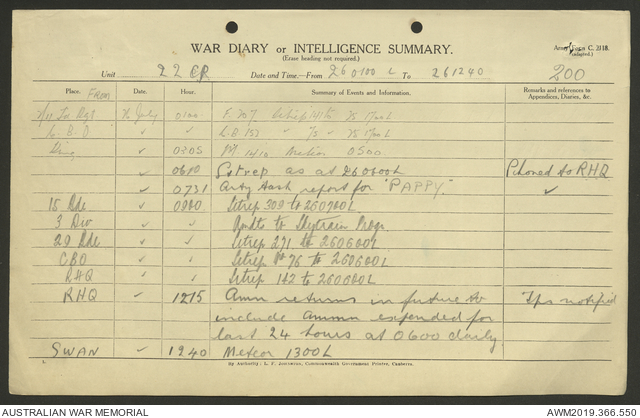 WAR DIARY or INTELLIGENCE SUMMARY.
(Erase heading not required.)
Army Form C. 2118.
(adapted.)
Unit 22 Date and Time.—From 260100 L To 261240 200
Place. From Date. Hour. Summary of Events and Information. Remarks and references to Appendices, Diaries, &c.
July 0100
✓
✓ 0305 0500
✓ 0610 Sitrep as at 260600L Phoned to RHQ
✓ 0731 Arty report for "PAPPY" ✓
15 Bde ✓ 0900 Sitrep 309 to 260700L
3 Div ✓ ✓ to Skytrain
29 Bde ✓ ✓ Sitrep 271 to 260600L
CBO ✓ ✓ Sitrep No 76 to 260600L
RHQ ✓ ✓ Sitrep 142 to 260600L
RHQ ✓ 1215 Amn returns in future to Tps notified
include Ammn expended for
last 24 hours at 0600 daily
SWAN ✓ 1240 Meteor 1300L
By Authority: L. F. Johnston, Commonwealth Government Printer, Canberra.
AUSTRALIAN WAR MEMORIAL AWM2019.366.550